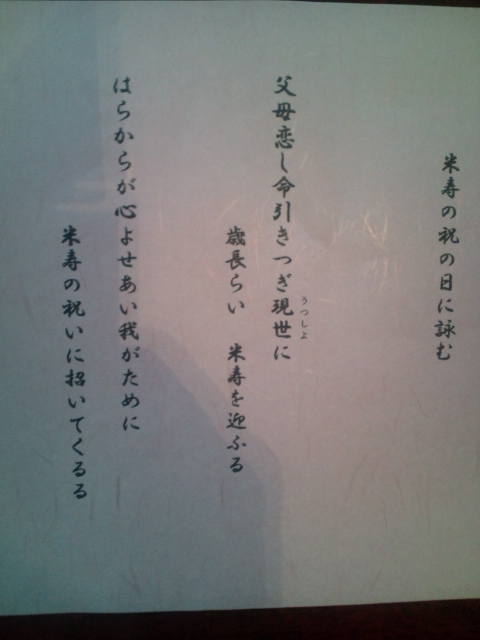 米寿の祝の日に詠む
父母恋し命引きつぎ現世に
うつしよ
歳長らい 米寿を迎ふる
はらからが心よせあい我がために
米寿の祝いに招いてくるる